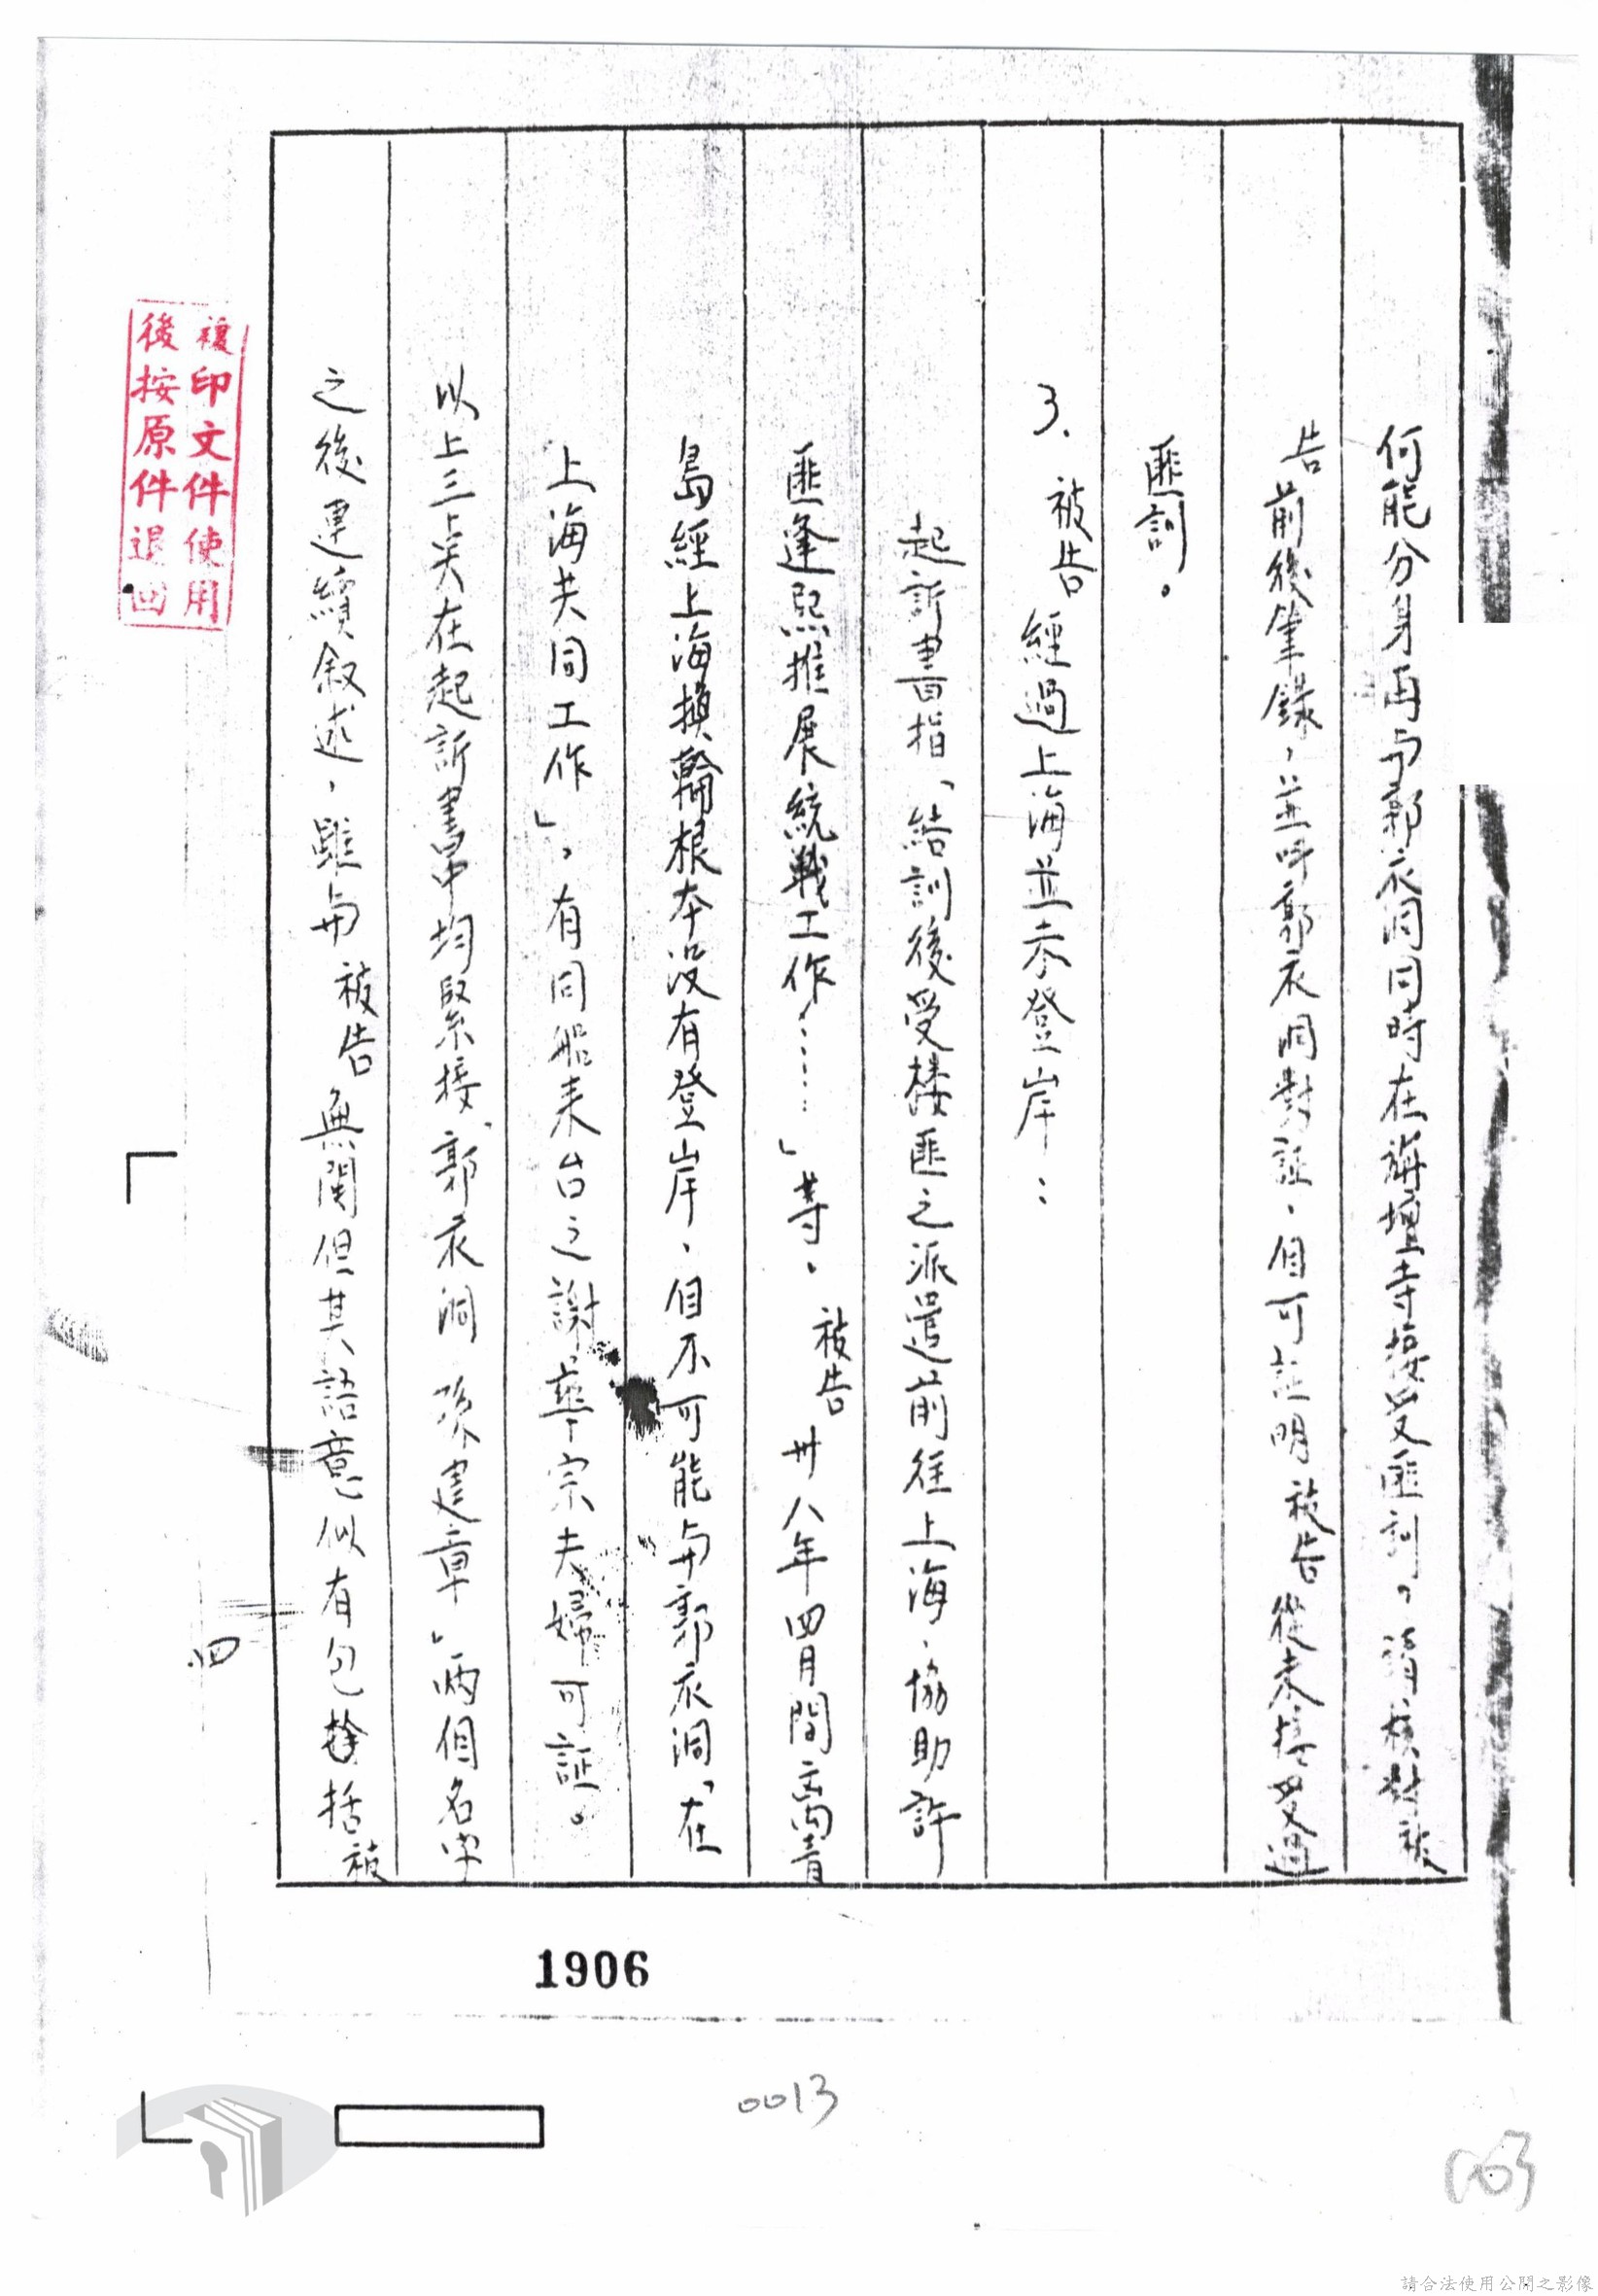 何能分身再与郭衣洞同時在講壇寺接受匪訓，請核對被
告前後筆錄，並呼郭衣洞對証，自可証明被告從未接受過
匪訓。
3、被告經過上海並未登岸：
起訴書指「結訓後受樓匪之派遣前往上海，協助許
匪逢熙推展統戰工作……」等，被告卅八年四月間离青
島經上海換輪根本沒有登岸，自不可能与郭衣洞「在
上海共同工作」，有同船来台之謝華宗夫婦可証。
以上三点在起訴書中均緊接「郭衣洞 孫建章」兩個名字
之後連續叙述，雖与被告無関但其語意似有包括被
四
複印文件使用
後按原件退回
1906
0013
103
請合法使用公開之影像